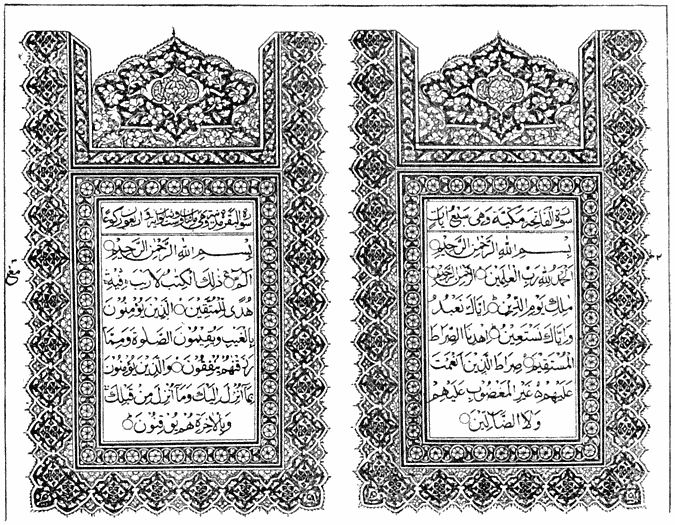 سورة الفاتحة مكية وهي سبع آيات
بِسْمِ اللهِ الرَّحْمٰنِ الرَّحِيمِ
اَلْحَمْدُ لِلّٰهِ رَبِّ الْعٰلَمِينَ الرَّحْمٰنِ الرَّحِيمِ
مٰلِكِ يَوْمِ الدِّينِ اِيَّاكَ نَعْبُدُ
وَاِيَّاكَ نَسْتَعِينُ اِهْدِنَا الصِّرَاطَ
الْمُسْتَقِيمَ صِرَاطَ الَّذِينَ اَنْعَمْتَ
عَلَيْهِمْ غَيْرِ الْمَغْضُوبِ عَلَيْهِمْ
وَلَا الضَّالِّينَ
سورة البقرة
بِسْمِ اللهِ الرَّحْمٰنِ الرَّحِيمِ
الٓمٓ ذٰلِكَ الْكِتٰبُ لَا رَيْبَ فِيهِ
هُدًى لِلْمُتَّقِينَ الَّذِينَ يُؤْمِنُونَ
بِالْغَيْبِ وَيُقِيمُونَ الصَّلٰوةَ وَمِمَّا
رَزَقْنٰهُمْ يُنْفِقُونَ وَالَّذِينَ يُؤْمِنُونَ
بِمَا اُنْزِلَ اِلَيْكَ وَمَا اُنْزِلَ مِنْ قَبْلِكَ
وَبِالْاٰخِرَةِ هُمْ يُوقِنُونَ